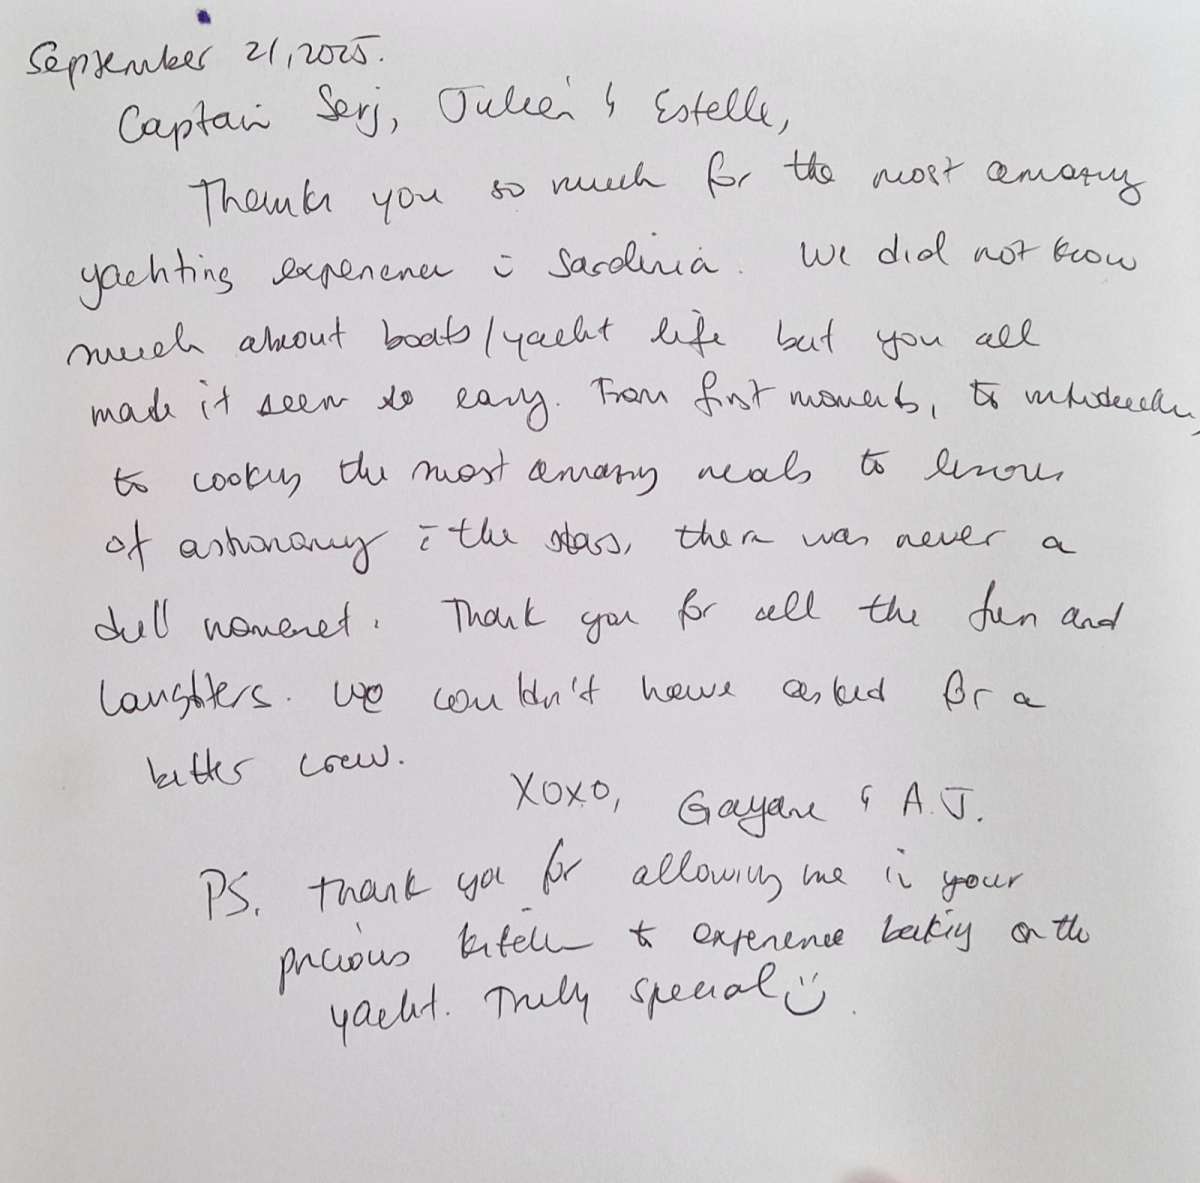 September 21, 2025.
Captain Serj, Julien & Estelle,
Thank you so much for the most amazing
yachting experience in Sardinia. We did not know
much about boats/yacht life but you all
made it seem so easy. From first moments, to introduction,
to cooking the most amazing meals to lessons
of astronomy in the stars, there was never a
dull moment. Thank you for all the fun and
laughters. We couldn't have asked for a
better crew.
XOXO, Gayane & A.J.
PS. Thank you for allowing me in your
precious kitchen to experience baking on the
yacht. Truly special